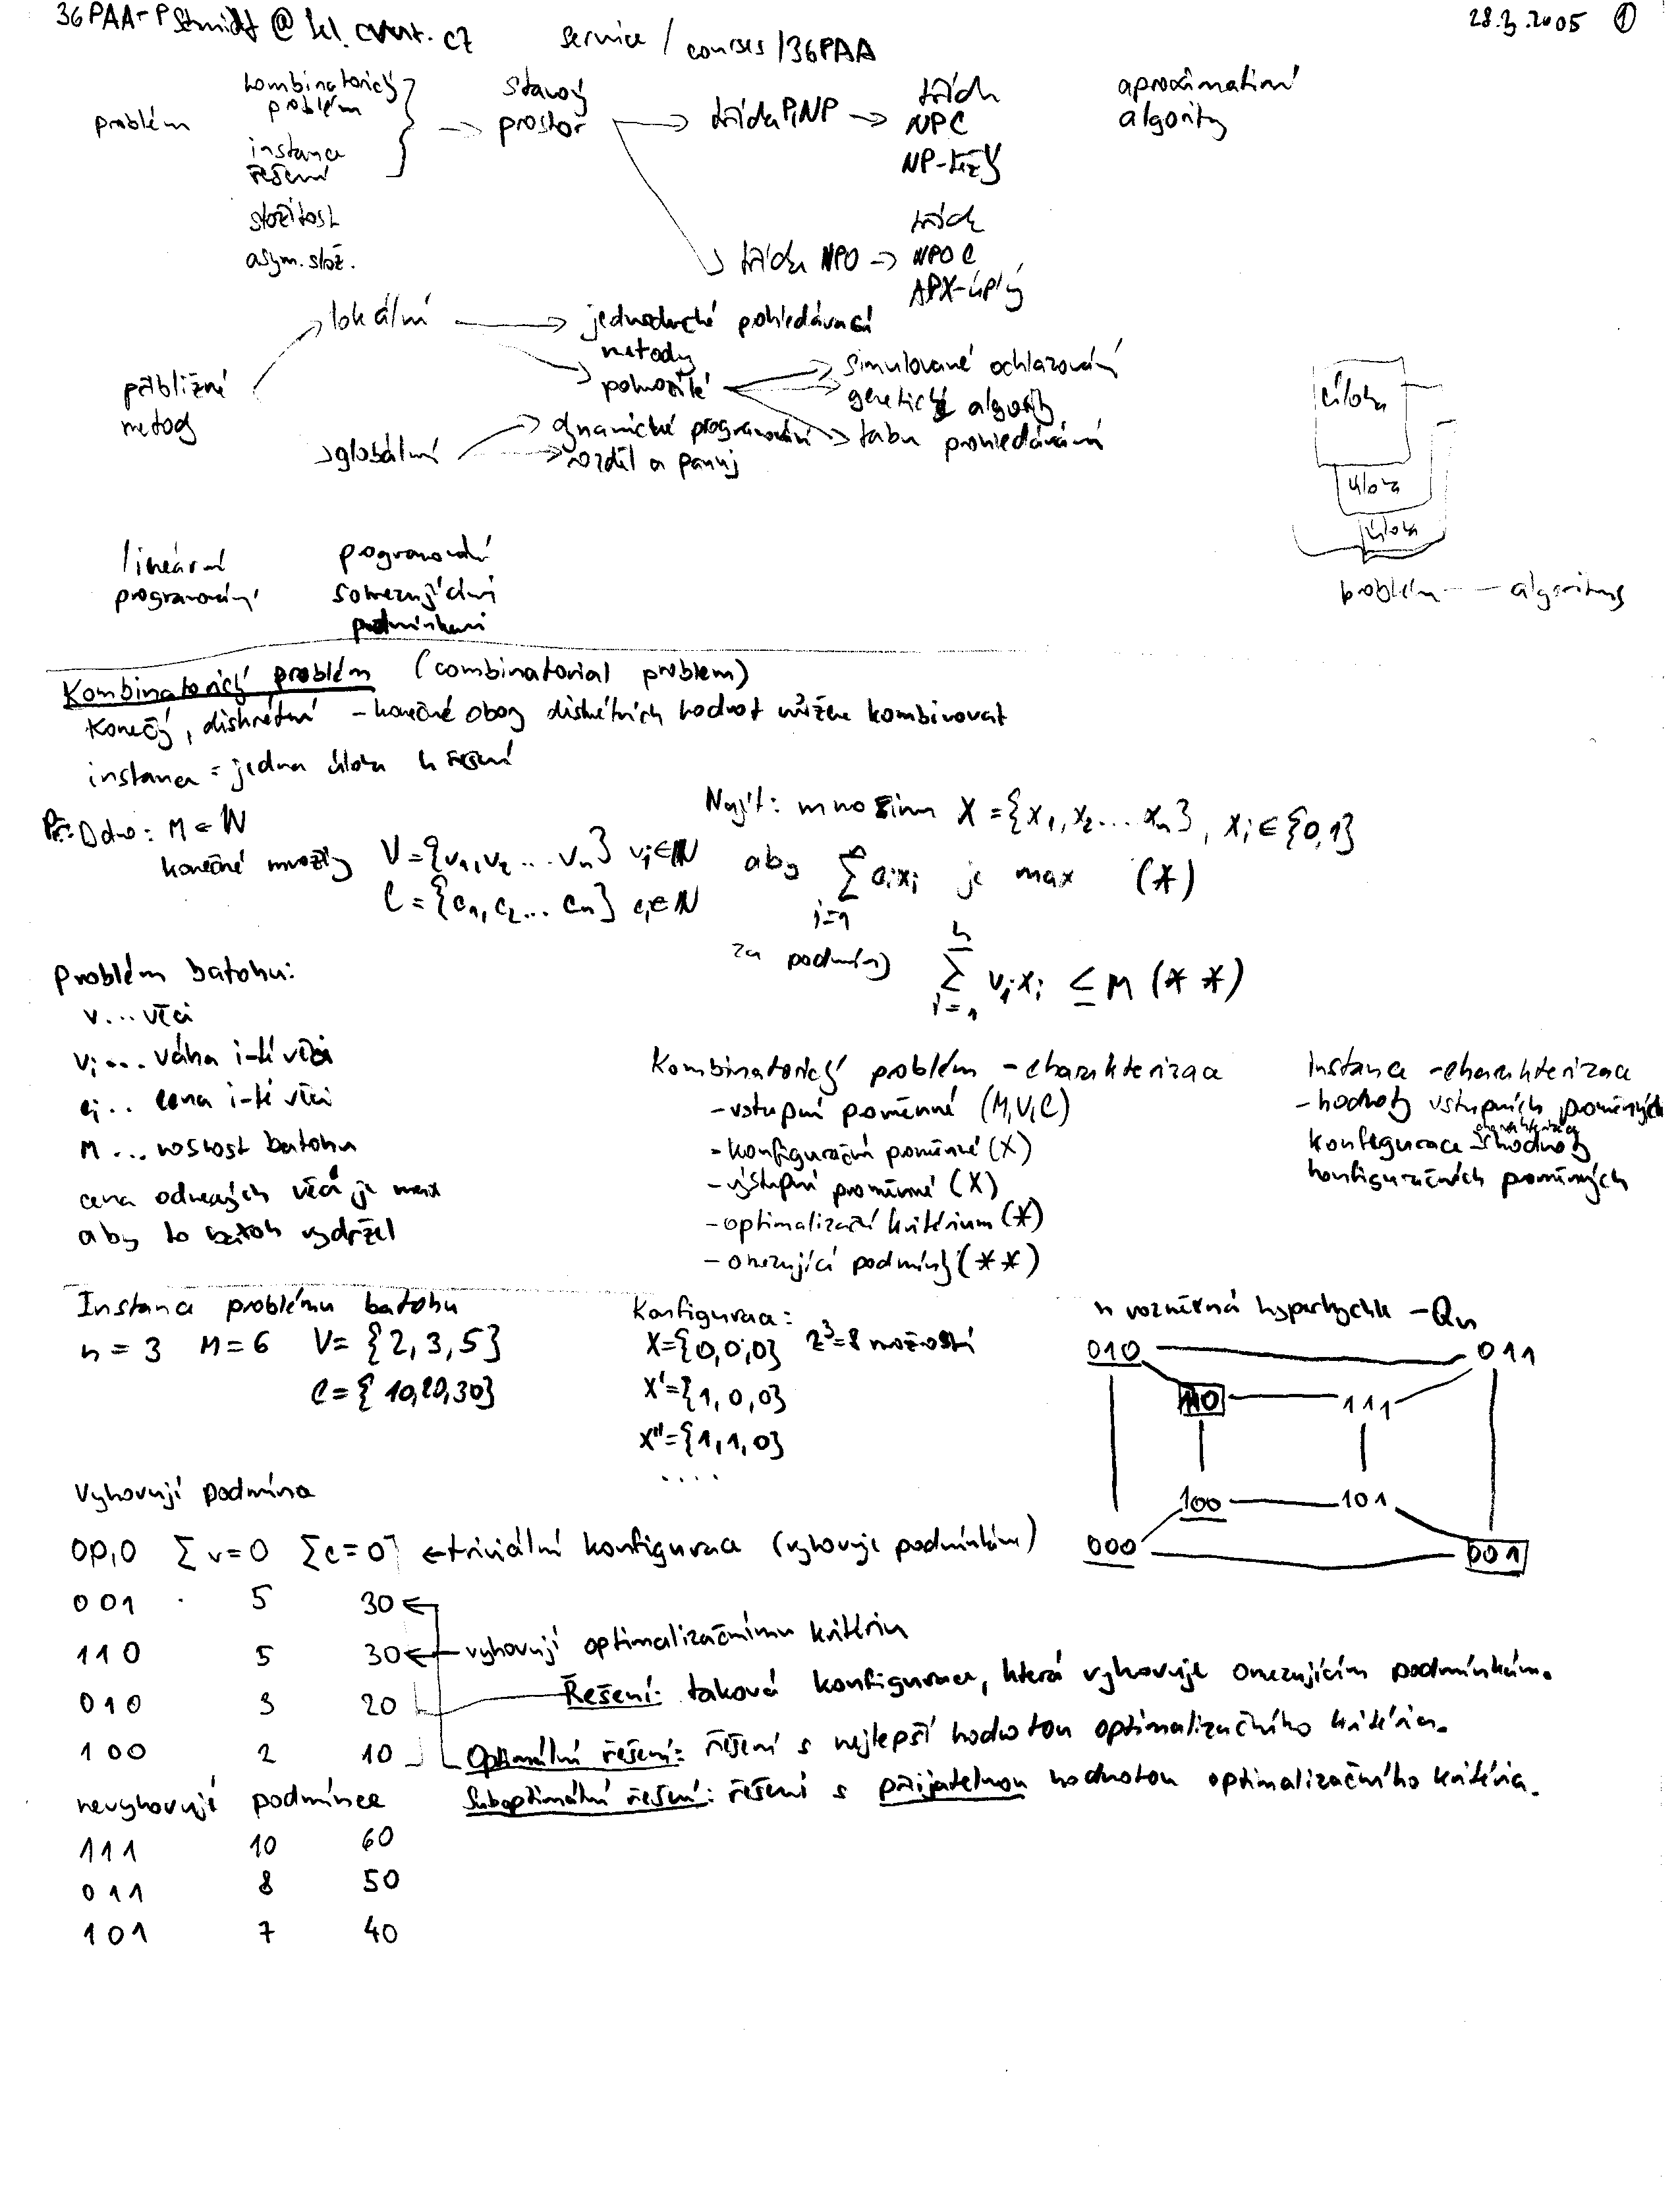 36PAA-P Schmidt@fel.cvut.cz service/courses/36PAA 28.2.2005 1
problém
kombinatorický
problém
instance
řešení
složitost
asym. slož.
stavový
prostor
třída P,NP
třída
NPC
NP-těžký
třída NPO
třída
NPOC
APX-úplný
aproximativní
algoritmy
přibližné
metody
lokální
jednoduché prohledávací
metody
pokročilé
simulované ochlazování
genetické algoritmy
tabu prohledávání
globální
dynamické programování
rozděl a panuj
úloha
úloha
úloha
problém -- algoritmus
lineární
programování
programování
s omezujícími
podmínkami
Kombinatorický problém (combinatorial problem)
konečný, diskrétní - konečné obory diskrétních hodnot můžeme kombinovat
instance = jedna úloha k řešení
Př: Dáno: M ∈ N
konečné množiny V = {v1, v2 ... vn} vi ∈ N
C = {c1, c2 ... cn} ci ∈ N
Najít: množinu X = {x1, x2 ... xn}, xi ∈ {0,1}
aby ∑ i=1 n cixi je max (*)
za podmínky ∑ i=1 n vixi ≤ M (**)
Problém batohu:
v... věci
vi... váha i-té věci
ci.. cena i-té věci
M ... nosnost batohu
cena odnesených věcí je max
aby to batoh vydržel
Kombinatorický problém - charakterizace
- vstupní proměnné (M,V,C)
- konfigurační proměnné (X)
- výstupní proměnné (X)
- optimalizační kritérium (*)
- omezující podmínky (**)
Instance - charakterizace
- hodnoty vstupních proměnných
konfigurace - charakterizace hodnoty
konfiguračních proměnných
Instance problému batohu
n = 3 M = 6 V = {2, 3, 5}
C = {10,20,30}
Konfigurace:
X={0,0,0} 2³=8 možností
X'={1,0,0}
X''={1,1,0}
....
n rozměrná hyperkrychle - Qn
010 011
110 111
100 101
000 001
Vyhovují podmínce
0,0,0 ∑v=0 ∑c=0 ← triviální konfigurace (vyhovuje podmínkám)
001 5 30
110 5 30 ← vyhovují optimalizačnímu kritériu
010 3 20
Řešení: taková konfigurace, která vyhovuje omezujícím podmínkám.
100 2 10
Optimální řešení: řešení s nejlepší hodnotou optimalizačního kritéria.
Suboptimální řešení: řešení s přijatelnou hodnotou optimalizačního kritéria.
nevyhovuje podmínce
111 10 60
011 8 50
101 7 40